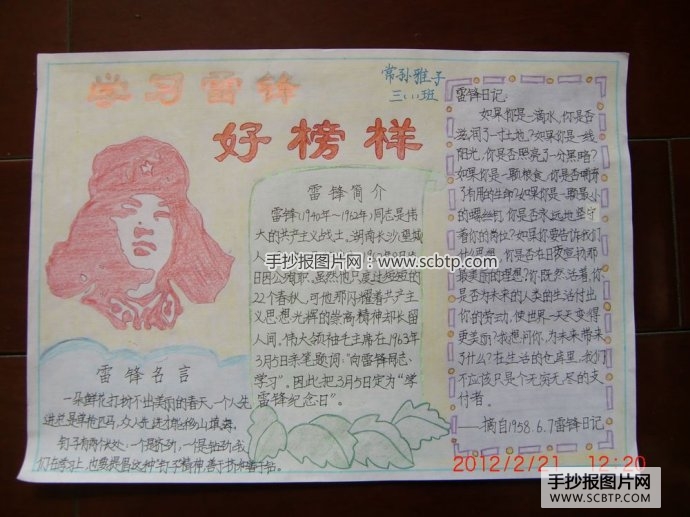 学习雷锋
好榜样
常孙雅子
三(1)班
雷锋简介
雷锋(1940年~1962年)同志是伟
大的共产主义战士。湖南长沙望城
人
日因公殉职。虽然他只度过短短的
22个春秋,可他那闪耀着共产主
义思想光辉的崇高精神却长留
人间。伟大领袖毛主席在1963年
3月5日亲笔题词:"向雷锋同志
学习"。因此把3月5日定为"学
雷锋纪念日"。
雷锋名言
一朵鲜花打扮不出美丽的春天,一个人先
进总是单枪匹马,众人先进才能移山填海。
钉子有两个长处:一是挤劲,一是钻劲,我
们在学习上,也要提倡这种"钉子"精神,善于挤和善于钻。
雷锋日记:
如果你是一滴水,你是否
滋润了一寸土地?如果你是一线
阳光,你是否照亮了一分黑暗?
如果你是一颗粮食,你是否哺育
了有用的生命?如果你是一颗最小
的螺丝钉,你是否永远地坚守
着你的岗位?如果你要告诉我们
什么思想,你是否在日夜宣扬那
最美丽的理想?你既然活着,你
是否为未来的人类的生活付出
你的劳动,使世界一天天变得
更美丽?我想问你,为未来带来
了什么?在生活的仓库里,我们
不应该只是个无穷无尽的支
付者。
——摘自1958.6.7雷锋日记
手抄报图片网-www.scbtp.com
2012/2/21 12:20
手抄报图片网
WWW.SCBTP.COM